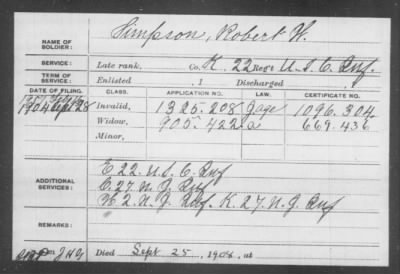 NAME OF SOLDIER: Simpson, Robert H.
SERVICE: Late rank, Co. K, 22 Reg't U.S.C. Inf.
TERM OF SERVICE: Enlisted , 1 Discharged , 1
DATE OF FILING. CLASS. APPLICATION NO. LAW. CERTIFICATE NO.
1904 Sept 28 Invalid, 1325.208 1096.304
Widow, 905.422 a 669.436
Minor,
ADDITIONAL SERVICES: E 22. U.S.C. Inf
C. 27. N.J. Inf
H 2. N.J. Inf. K. 27. N.J. Inf
REMARKS:
Died Sept 25, 1908, at